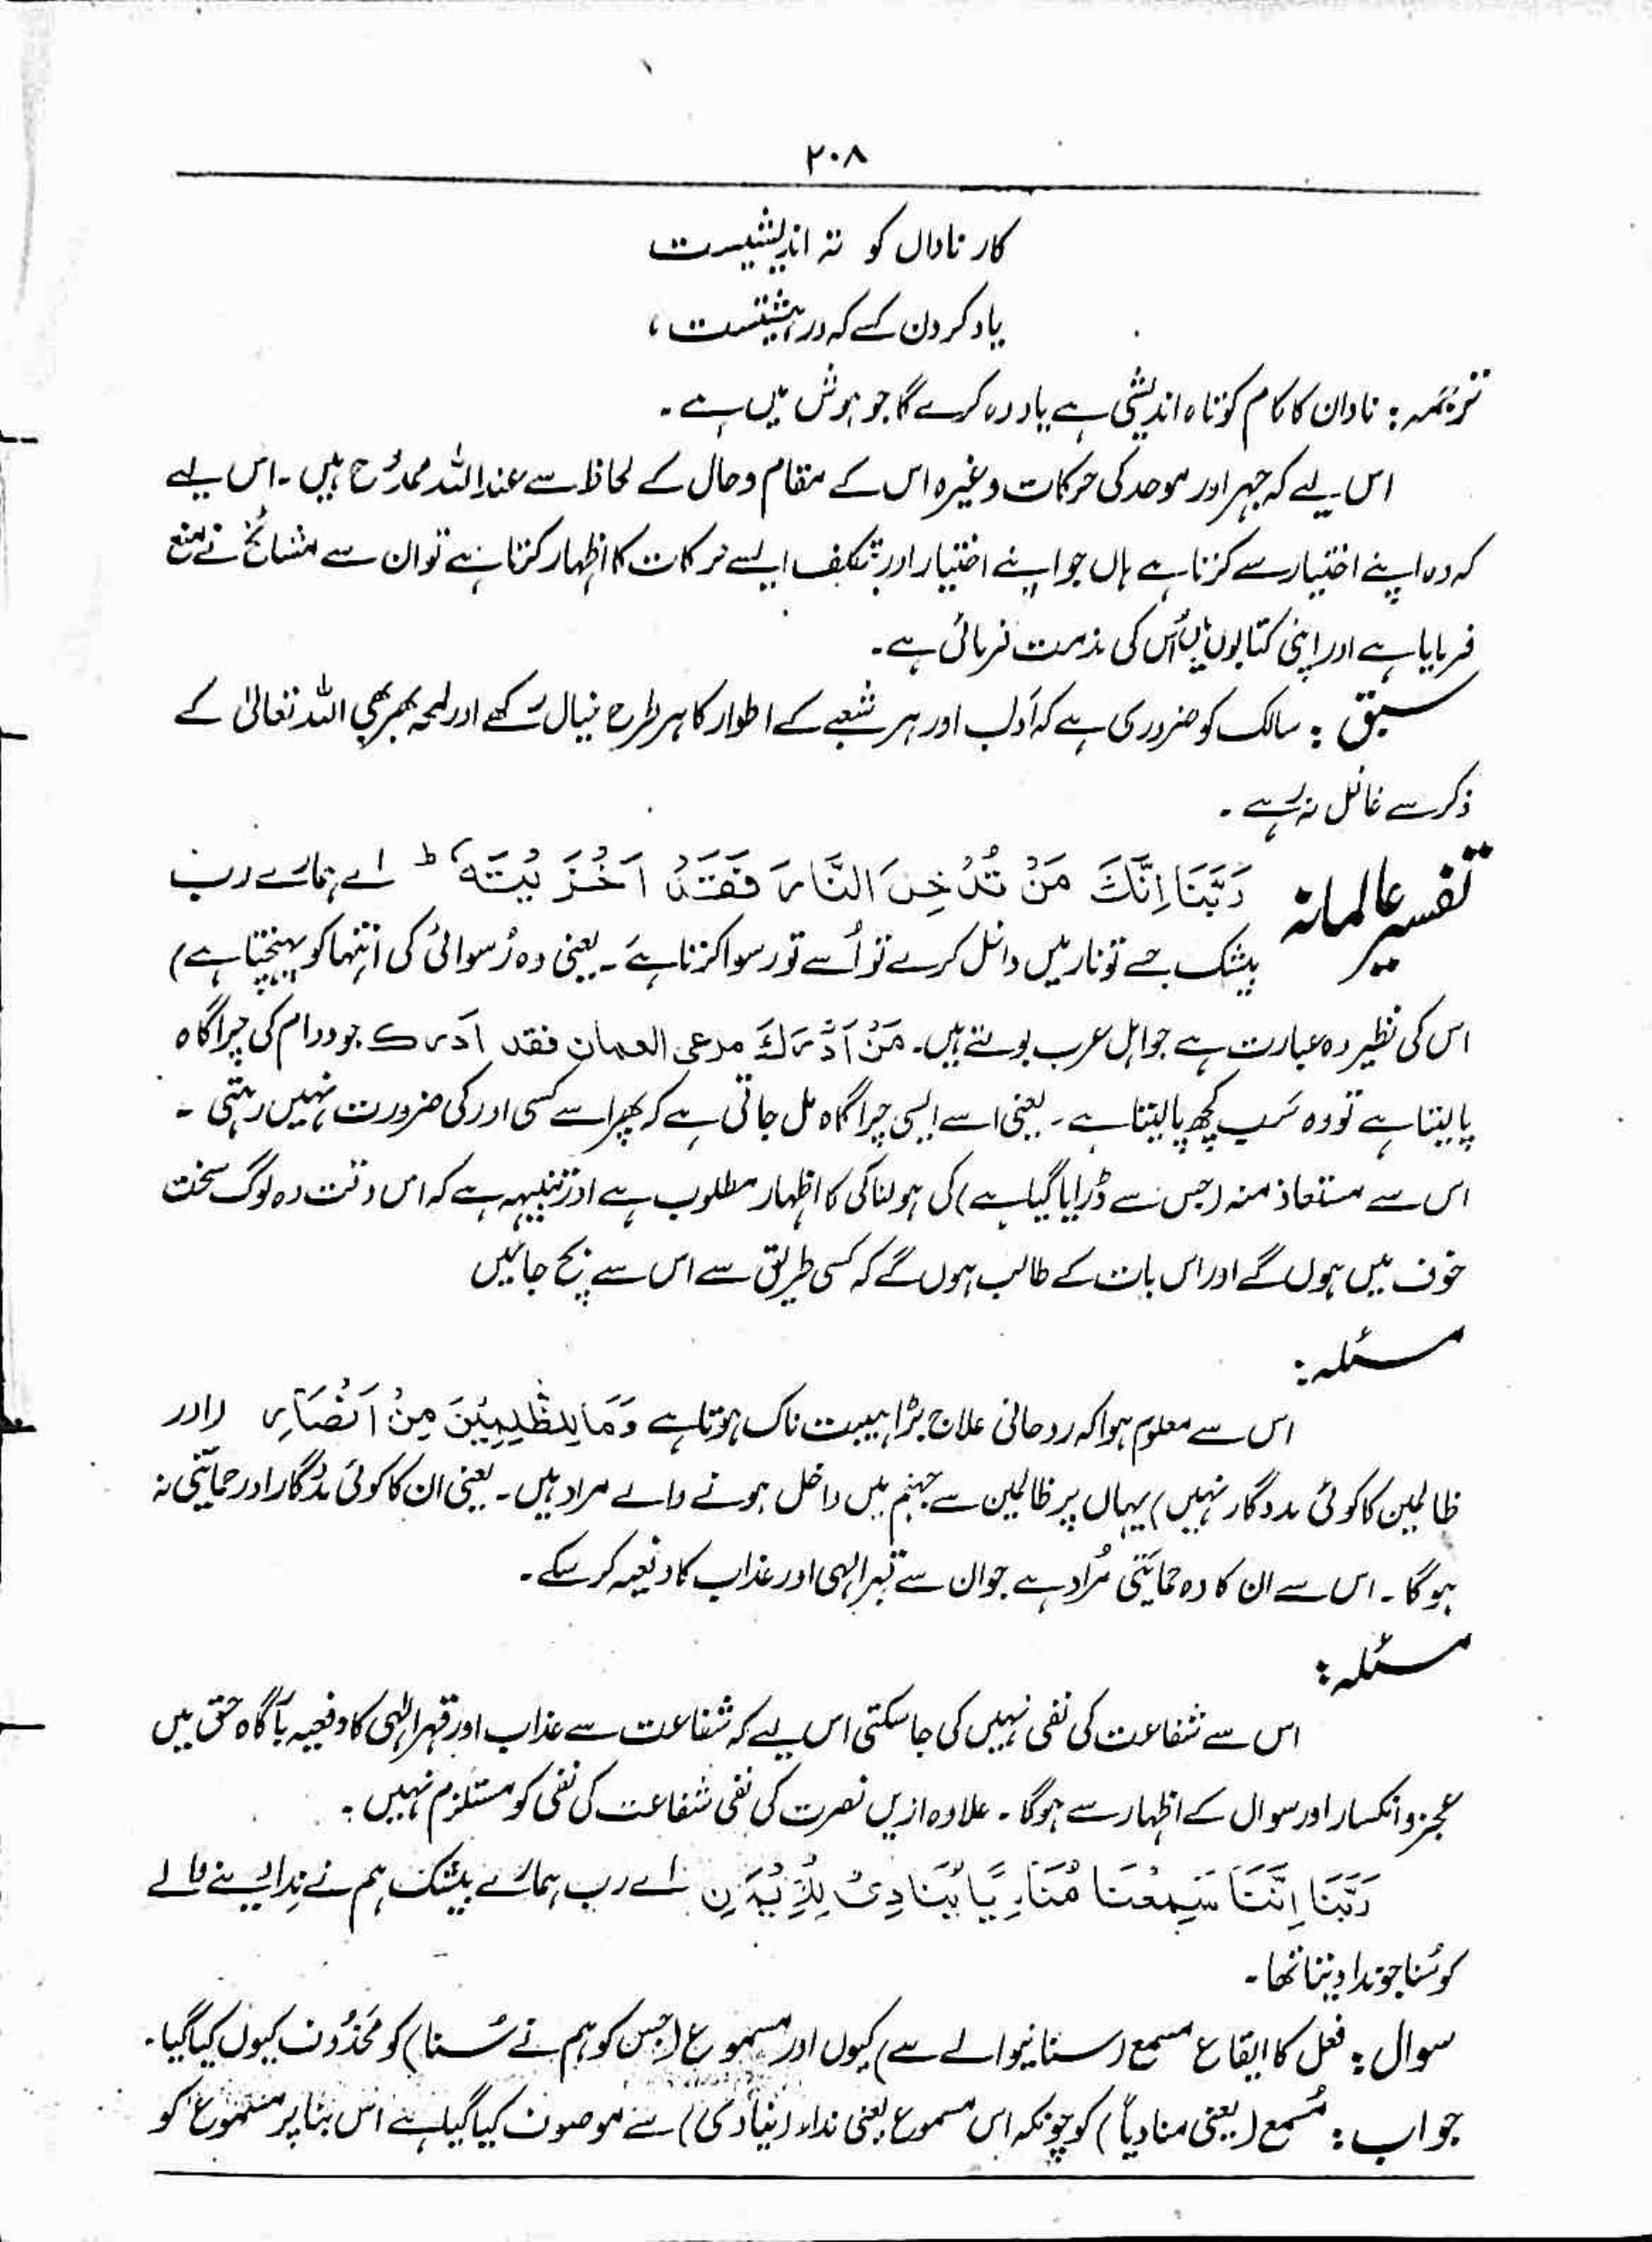 ۲۰۸
کار ناداں کو تہ اندیشیست
یاد کردن کسے کہ در پیشست،
ترجمہ: نادان کا کام کوتاہ اندیشی ہے یاد وہ کرے گا جو ہوش میں ہے۔
اس لیے کہ جہر اور موحد کی حرکات وغیرہ اس کے مقام و حال کے لحاظ سے عنداللہ ممدُوح ہیں۔ اس لیے
کہ وہ اپنے اختیار سے کرتا ہے ہاں جو اپنے اختیار اور بتکلف ایسے حرکات کا اظہار کرتا ہے تو ان سے مشائخ نے منع
فرمایا ہے اور اپنی کتابوں میں اُس کی مذمت فرمائی ہے۔
سبق: سالک کو ضروری ہے کہ آدب اور ہر شعبے کے اطوار کا ہر طرح خیال رکھے اور لمحہ بھر بھی اللہ تعالیٰ کے
ذکر سے غافل نہ رہے۔
تفسیر عالمانہ رَبَّنَا اِنَّكَ مَنْ تُدْخِلِ النَّارَ فَقَدْ اَخْزَيْتَهٗ ط اے ہمارے رب
بیشک جسے تو نار میں داخل کرے تو اُسے تو رسوا کرتا ہے۔ یعنی وہ رُسوائی کی انتہا کو پہنچتا ہے)
اس کی نظیر وہ عبارت ہے جو اہل عرب بولتے ہیں۔ مَنْ اَدْرَكَ مرعی الصمان فقد ادرک جو ودام کی چراگاہ
پا لیتا ہے تو وہ سَب کچھ پا لیتا ہے۔ یعنی اسے ایسی چراگاہ مل جاتی ہے کہ پھر اسے کسی اور کی ضرورت نہیں رہتی۔
اس سے مستعاذ منہ (جس سے ڈرایا گیا ہے) کی ہولناکی کا اظہار مطلوب ہے اور تنبیہہ ہے کہ اس وقت وہ لوگ سخت
خوف میں ہوں گے اور اس بات کے طالب ہوں گے کہ کسی طریق سے اس سے بچ جائیں
مسئلہ:
اس سے معلوم ہوا کہ روحانی علاج بڑا ہیبت ناک ہوتا ہے وَمَا لِلظّٰلِمِيْنَ مِنْ اَنْصَارٍ (اور
ظالمین کا کوئی مددگار نہیں) یہاں پر ظالمین سے جہنم میں داخل ہونے والے مراد ہیں۔ یعنی ان کا کوئی مددگار اور حمایتی نہ
ہو گا۔ اس سے ان کا وہ حمایتی مُراد ہے جو ان سے قہر الٰہی اور عذاب کا دفعیہ کر سکے۔
مسئلہ:
اس سے شفاعت کی نفی نہیں کی جا سکتی اس لیے کہ شفاعت سے عذاب اور قہر الٰہی کا دفعیہ بآگاہ حق میں
عجز و انکسار اور سوال کے اظہار سے ہو گا۔ علاوہ ازیں نصرت کی نفی شفاعت کی نفی کو مستلزم نہیں۔
رَبَّنَا اِنَّنَا سَمِعْنَا مُنَادِيًا يُّنَادِیْ لِلْاِيْمَانِ اے رب ہمارے بیشک ہم نے ندا دینے والے
کو سُنا جو ندا دیتا تھا۔
سوال: فعل کا ایقاع مسمع (سنانیوالے سے) کیوں اور مسموع (جس کو ہم نے سُنا) کو محذُوف کیوں کیا گیا۔
جواب: مُسمع (یعنی منادیاً) کو چونکہ اس مسموع یعنی نداء (ینادی) سے موصوف کیا گیا ہے اس بنا پر مسموع کو